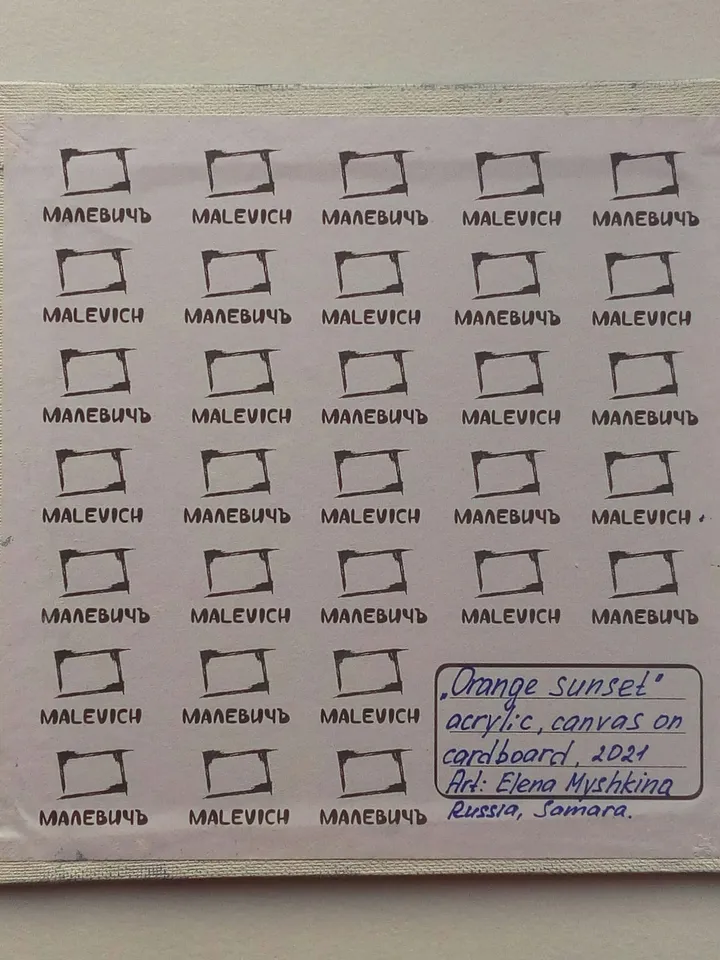 МАЛЕВИЧЪ MALEVICH МАЛЕВИЧЪ MALEVICH МАЛЕВИЧЪ
MALEVICH МАЛЕВИЧЪ MALEVICH МАЛЕВИЧЪ MALEVICH
МАЛЕВИЧЪ MALEVICH МАЛЕВИЧЪ MALEVICH МАЛЕВИЧЪ
MALEVICH МАЛЕВИЧЪ MALEVICH МАЛЕВИЧЪ MALEVICH
МАЛЕВИЧЪ MALEVICH МАЛЕВИЧЪ MALEVICH МАЛЕВИЧЪ
MALEVICH МАЛЕВИЧЪ MALEVICH
МАЛЕВИЧЪ MALEVICH МАЛЕВИЧЪ
„Orange sunset"
acrylic, canvas on
cardboard, 2021
Art: Elena Myshkina
Russia, Samara.